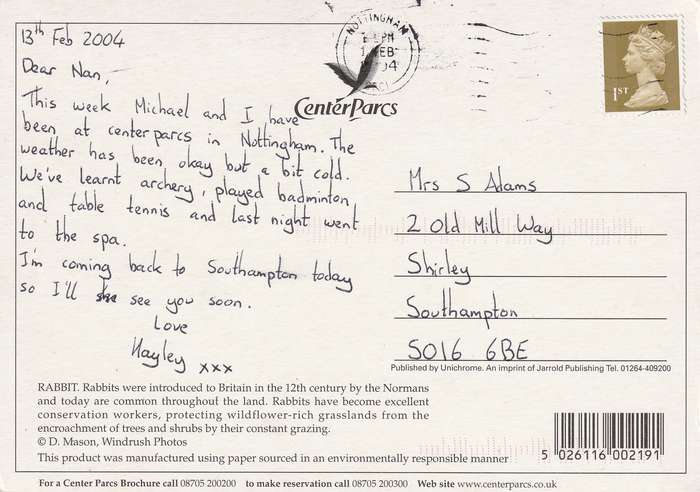 13th Feb 2004
Dear Nan,
This week Michael and I have
been at centerparcs in Nottingham. The
weather has been okay but a bit cold.
We've learnt archery, played badminton
and table tennis and last night went
to the spa.
I'm coming back to Southampton today
so I'll see you soon.
Love
Hayley xxx
NOTTINGHAM
CenterParcs
1ST
Mrs S Adams
2 Old Mill Way
Shirley
Southampton
SO16 6BE
Published by Unichrome. An imprint of Jarrold Publishing Tel. 01264-409200
RABBIT. Rabbits were introduced to Britain in the 12th century by the Normans
and today are common throughout the land. Rabbits have become excellent
conservation workers, protecting wildflower-rich grasslands from the
encroachment of trees and shrubs by their constant grazing.
© D. Mason, Windrush Photos
This product was manufactured using paper sourced in an environmentally responsible manner
5 026116 002191
For a Center Parcs Brochure call 08705 200200 to make reservation call 08705 200300 Web site www.centerparcs.co.uk